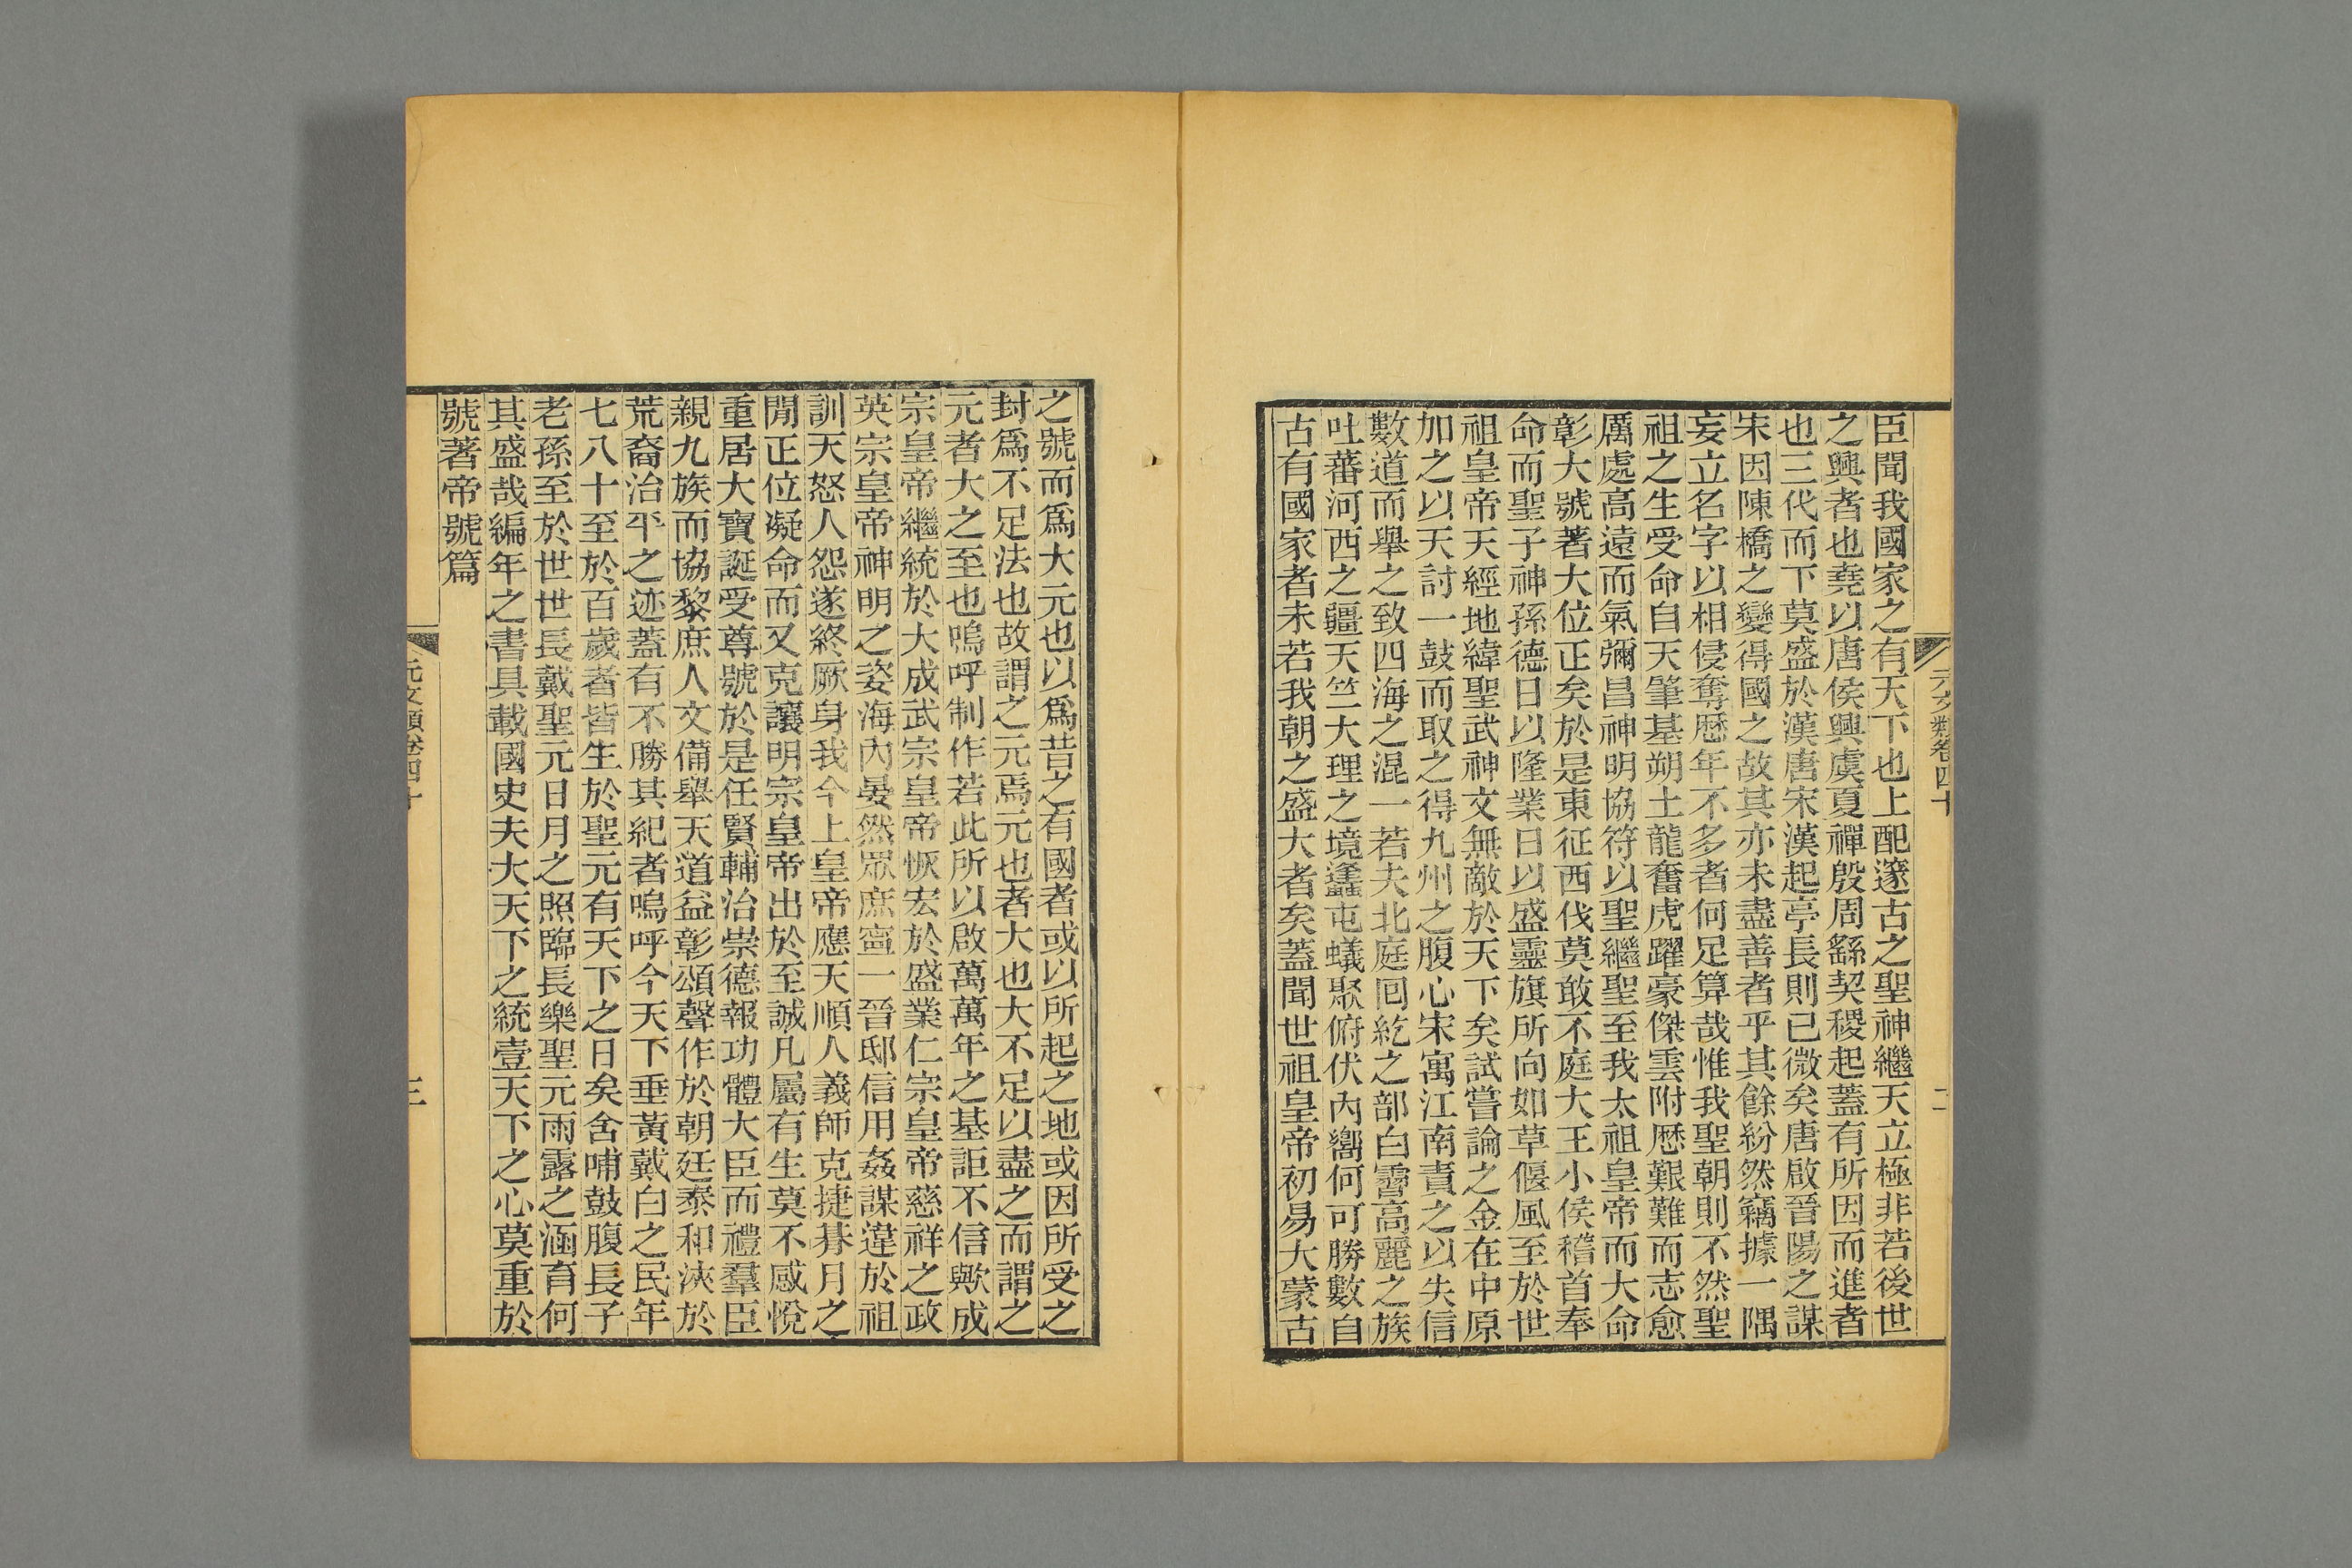 元文類卷四十
二
臣聞我國家之有天下也上配邃古之聖神繼天立極非若後世
之興者也堯以唐侯興虞夏禪殷周繇契稷起蓋有所因而進者
也三代而下莫盛於漢唐宋漢起亭長則已微矣唐啟晉陽之謀
宋因陳橋之變得國之故其亦未盡善者乎其餘紛然竊據一隅
妄立名字以相侵奪歷年不多者何足算哉惟我聖朝則不然聖
祖之生受命自天肇基朔土龍奮虎躍豪傑雲附歷艱難而志愈
厲處高遠而氣彌昌神明協符以聖繼聖至我太祖皇帝而大命
彰大號著大位正矣於是東征西伐莫敢不庭大王小侯稽首奉
命而聖子神孫德日以隆業日以盛靈旗所向如草偃風至於世
祖皇帝天經地緯聖武神文無敵於天下矣試嘗論之金在中原
加之以天討一鼓而取之得九州之腹心宋寓江南責之以失信
數道而舉之致四海之混一若夫北庭回紇之部白霫高麗之族
吐蕃河西之疆天竺大理之境蠭屯蟻聚俯伏內嚮何可勝數自
古有國家者未若我朝之盛大者矣蓋聞世祖皇帝初易大蒙古
之號而爲大元也以爲昔之有國者或以所起之地或因所受之
封爲不足法也故謂之元焉元也者大也大不足以盡之而謂之
元者大之至也嗚呼制作若此所以啟萬萬年之基詎不信歟成
宗皇帝繼統於大成武宗皇帝恢宏於盛業仁宗皇帝慈祥之政
英宗皇帝神明之姿海內晏然眾庶寍一晉邸信用姦謀違於祖
訓天怒人怨遂終厥身我今上皇帝應天順人義師克捷朞月之
閒正位凝命而又克讓明宗皇帝出於至誠凡屬有生莫不感悅
重居大寶誕受尊號於是任賢輔治崇德報功體大臣而禮羣臣
親九族而協黎庶人文備舉天道益彰頌聲作於朝廷泰和浹於
荒裔治平之迹蓋有不勝其紀者嗚呼今天下垂黃戴白之民年
七八十至於百歲者皆生於聖元有天下之日矣含哺鼓腹長子
老孫至於世世長戴聖元日月之照臨長樂聖元雨露之涵育何
其盛哉編年之書具載國史夫大天下之統壹天下之心莫重於
號著帝號篇
元文類卷四十
三